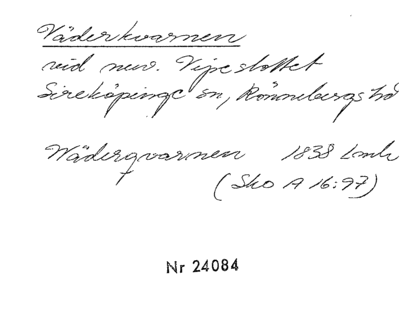 Väderkvarnen
vid nuv. Vipeslottet
Sireköpinge sn, Rönnebergs hd
Wäderqvarnen 1838 Lmh
(Sko A 16:97)
Nr 24084